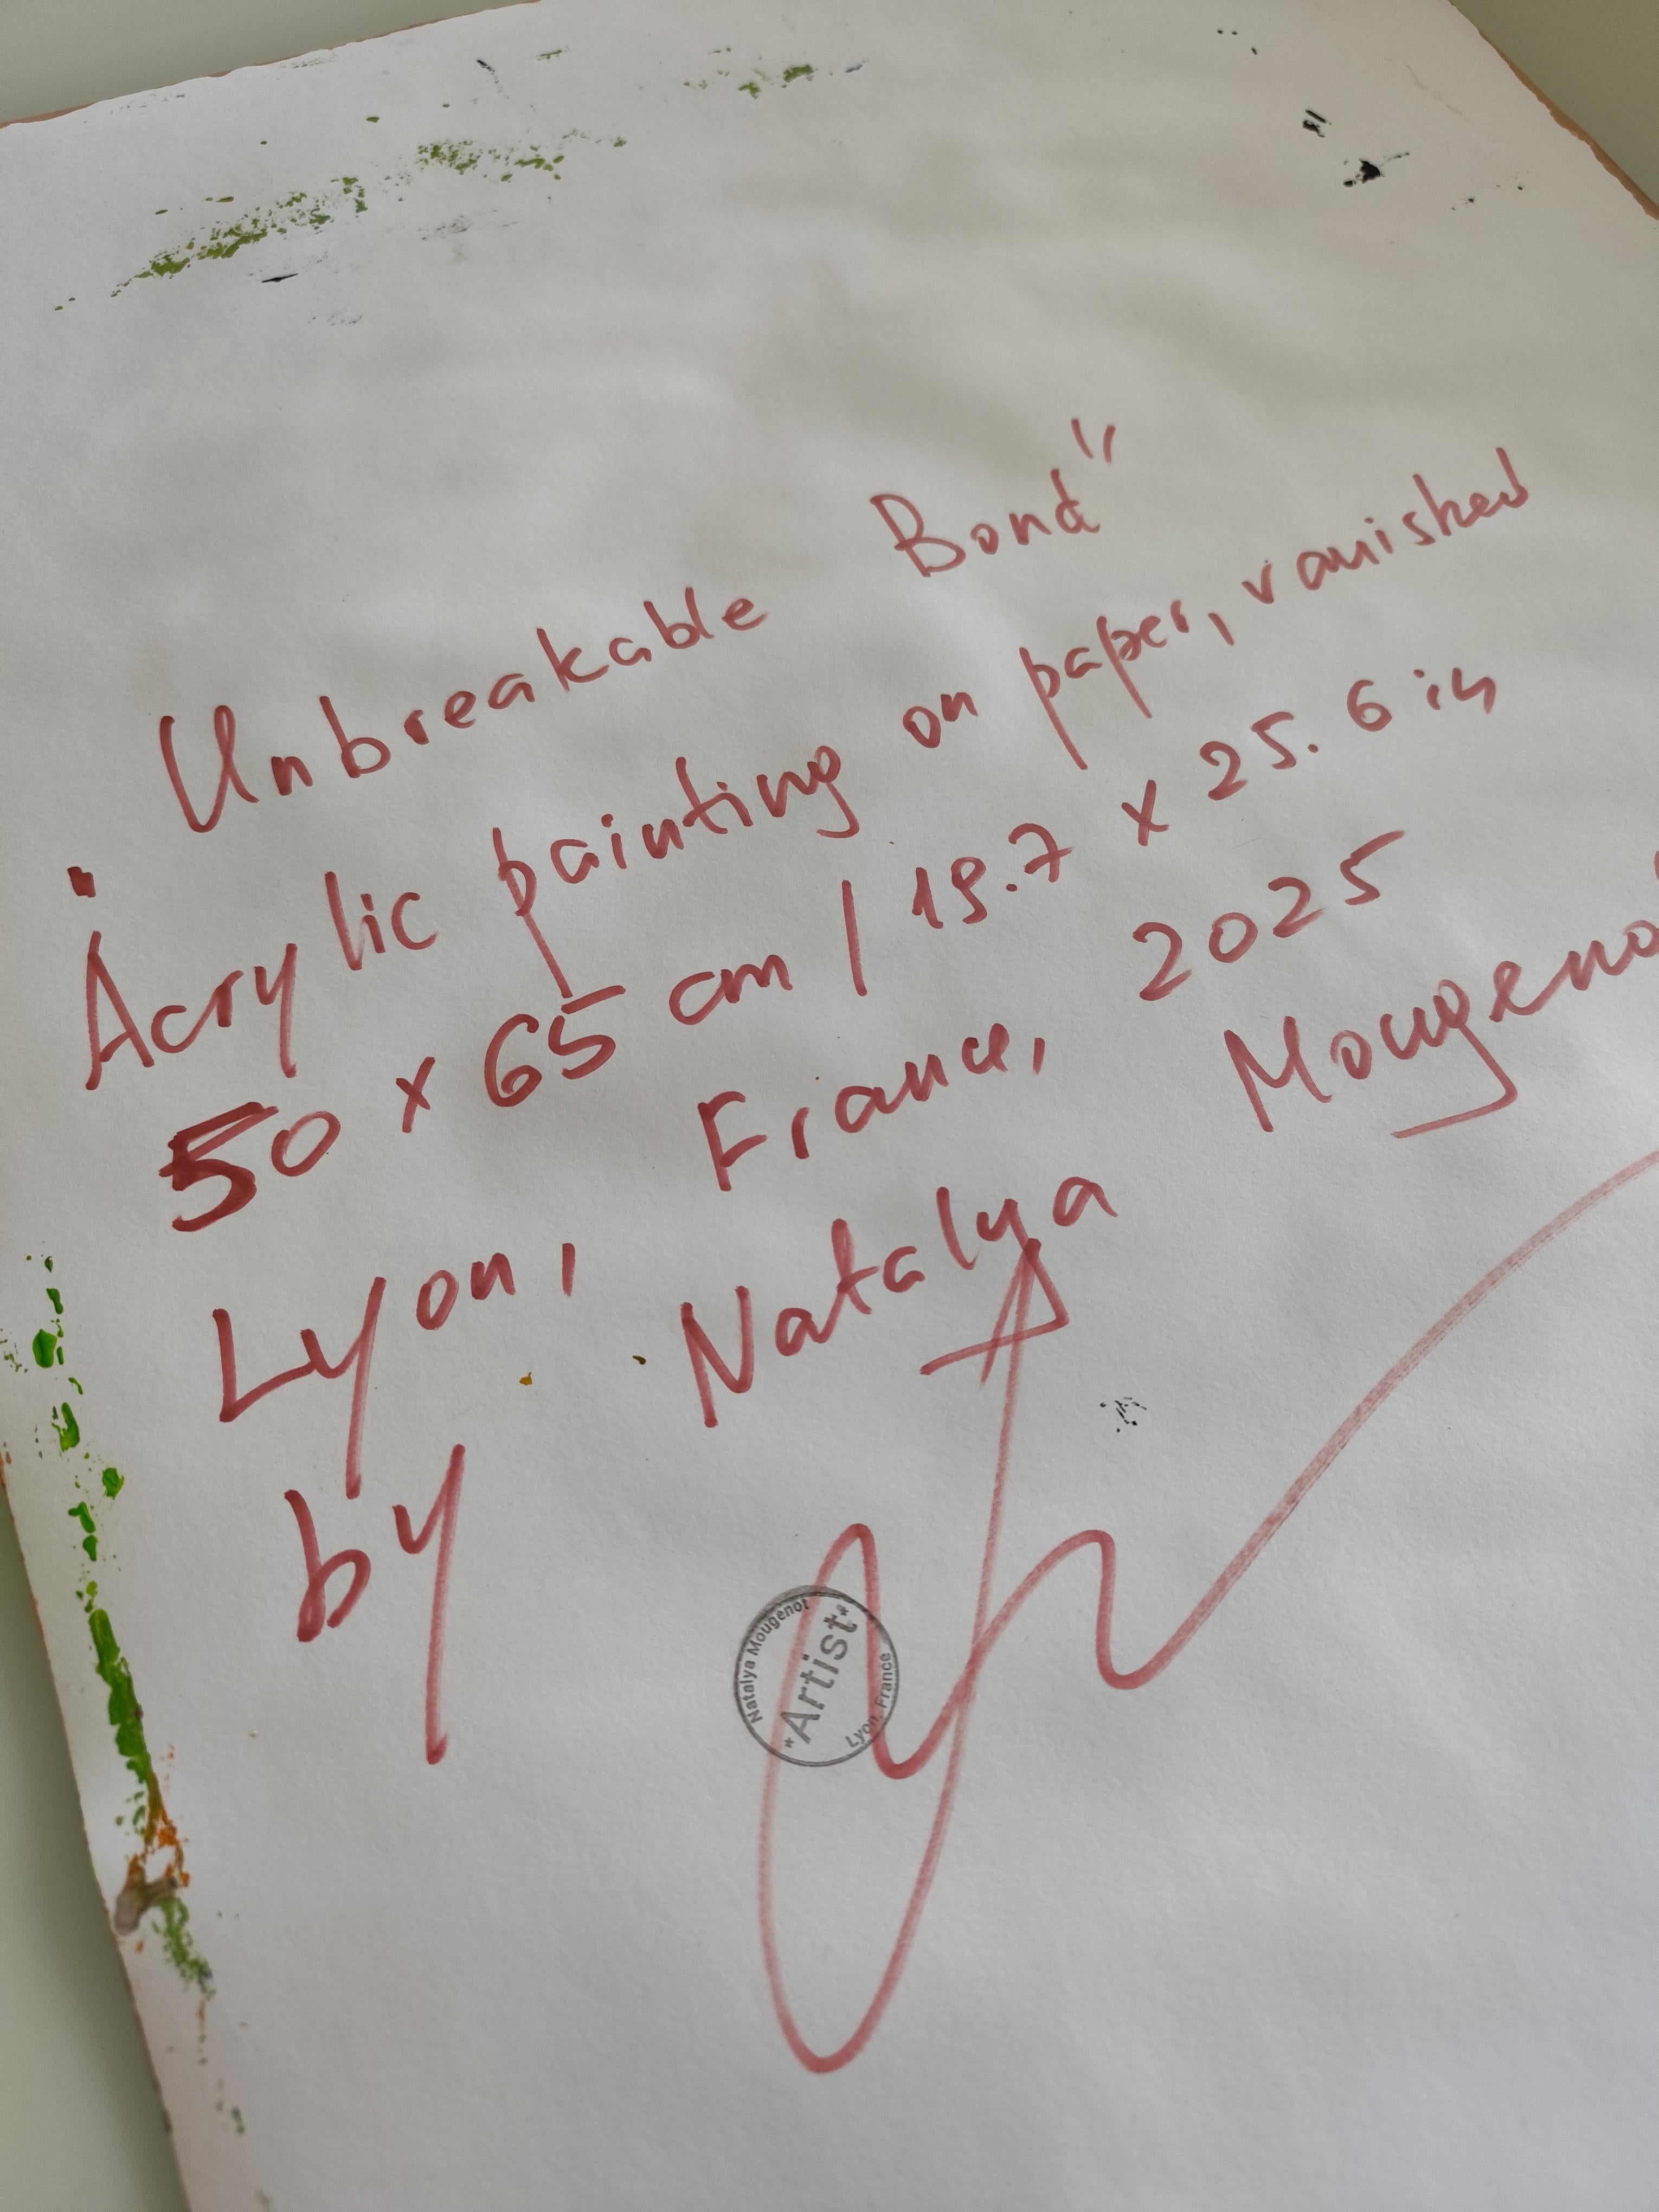 Unbreakable Bond"
Acrylic painting on paper, vanished
50 x 65 cm / 19.7 x 25.6 in
Lyon, France, 2025
by Natalya Mougenot
Natalya Mougenot
*Artist*
Lyon, France